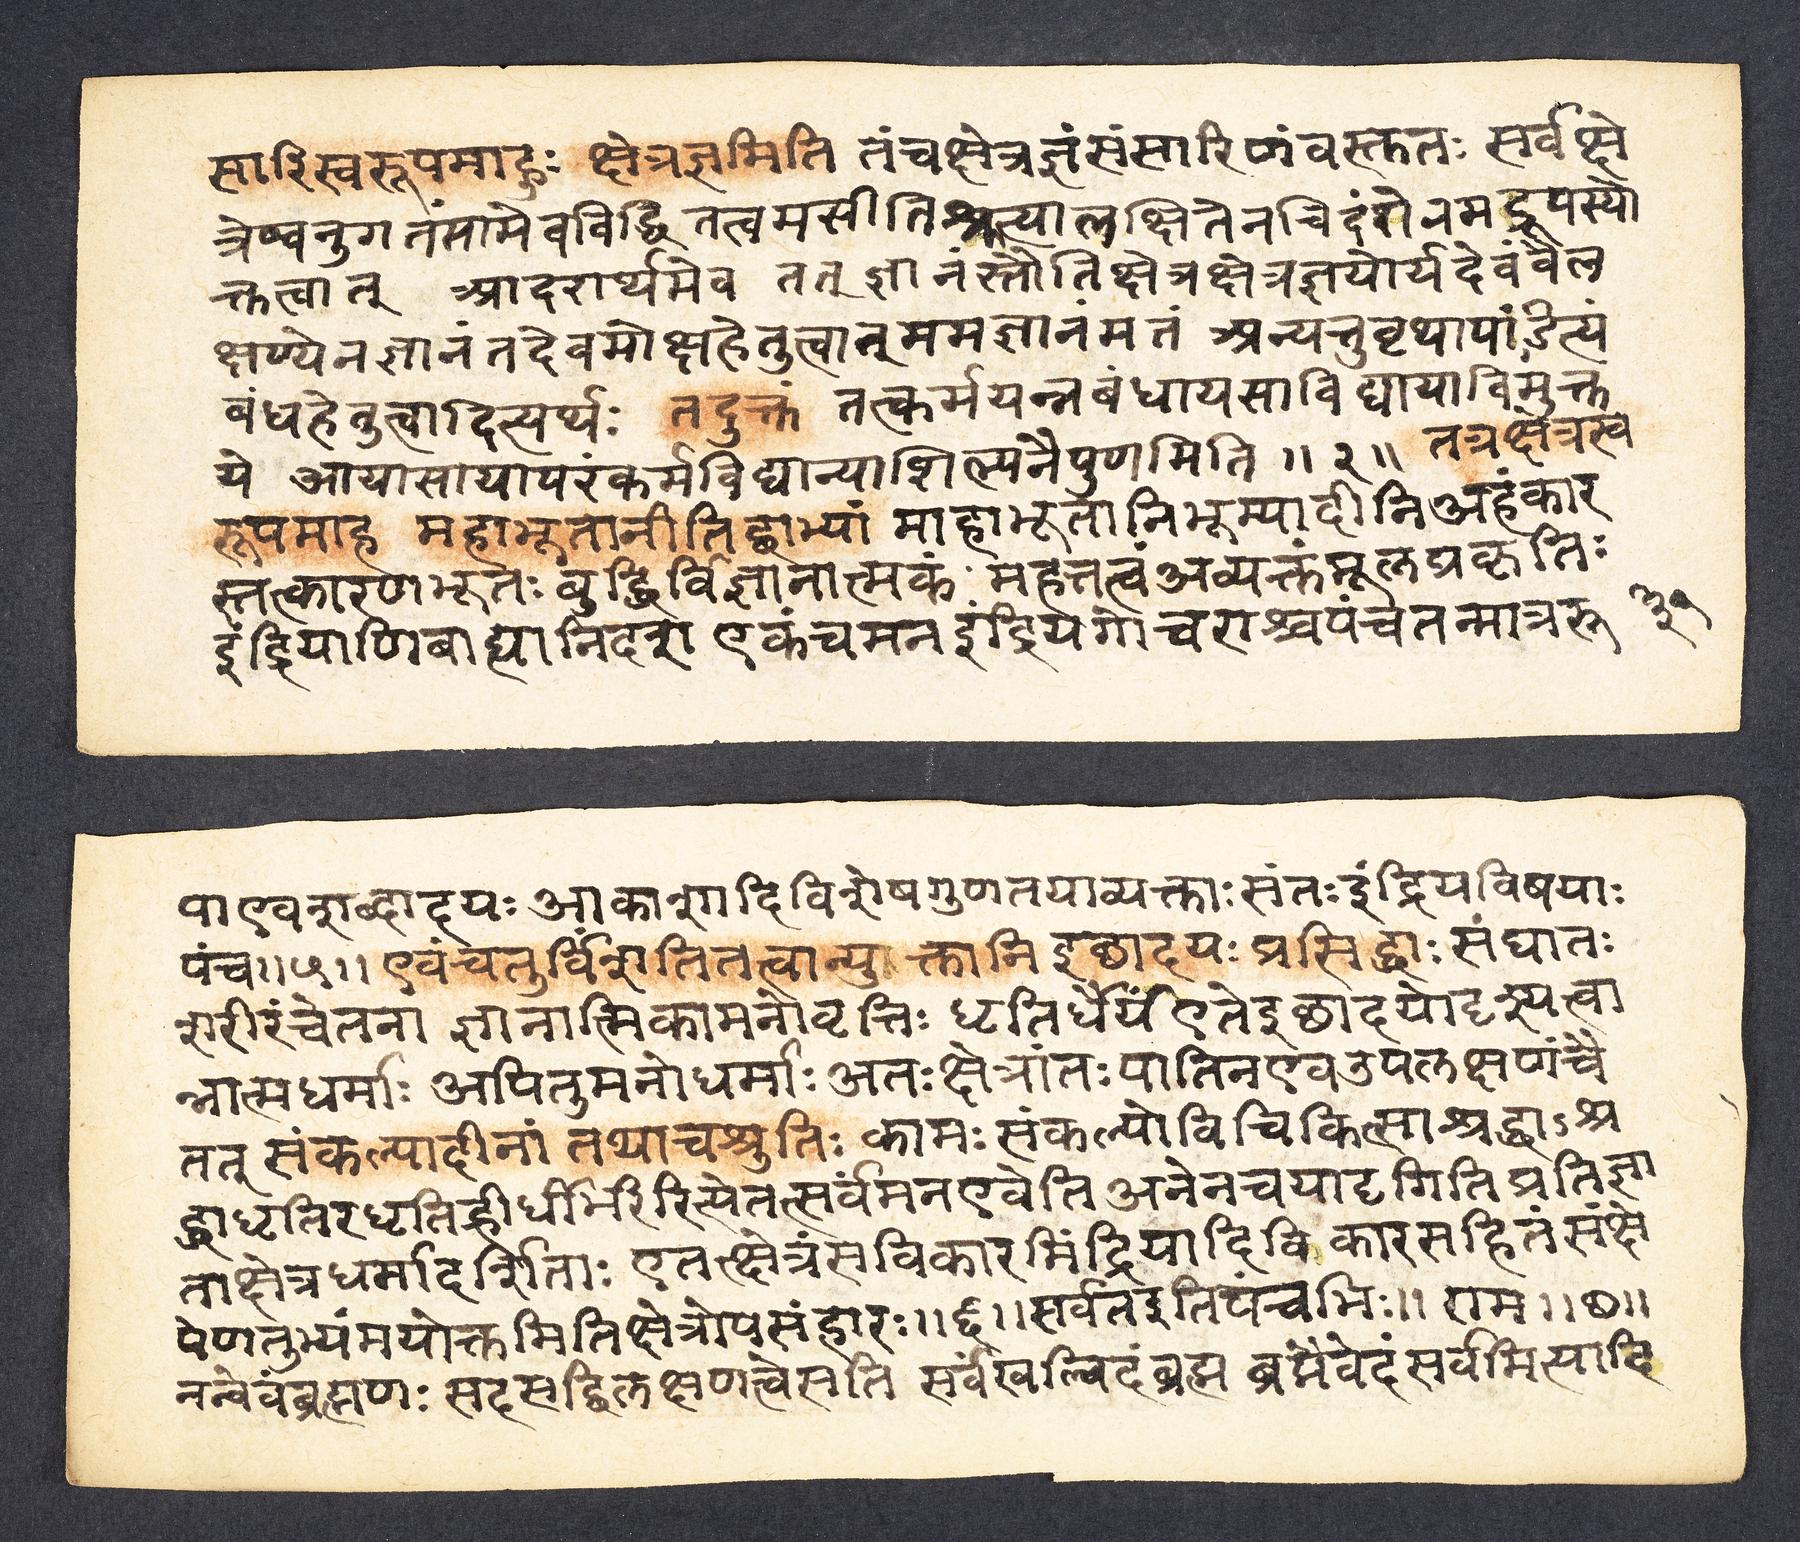 सारिस्वरूपमाहुः क्षेत्रज्ञमिति तंचक्षेत्रज्ञंसंसारिणंवस्ततः सर्वक्षे
त्रेष्वनुगतंमामेवविद्धि तत्वमसीतिश्रुत्यालक्षितेनचिदंशेनमद्रूपस्यो
क्तत्वात् आदरार्थमेव तत् ज्ञानंस्तौतिक्षेत्रक्षेत्रज्ञयोर्यदेवंवैल
क्षण्येनज्ञानंतदेवमोक्षहेतुत्वात्ममज्ञानंमतं अन्यत्तुवृथापांडित्यं
बंधहेतुत्वादित्यर्थः तदुक्तं तत्कर्मयन्नबंधायसाविद्यायाविमुक्त
ये आयासायापरंकर्मविद्यान्याशिल्पनैपुणमिति ॥२॥ तत्रक्षेत्रस्व
रूपमाह महाभूतानीतिद्वाभ्यां माहाभूतानिभूम्यादीनिअहंकार
स्तत्कारणभूतः बुद्धिर्विज्ञानात्मकं महत्तत्वंअव्यक्तंमूलप्रकृतिः
इंद्रियाणिबाह्यानिदश एकंचमनइंद्रियगोचराश्चपंचतन्मात्ररू
पाएवशब्दादयः आकाशादिविशेषगुणतयाव्यक्ताःसंतःइंद्रियविषयाः
पंच॥५॥ एवंचतुर्विंशतितत्वान्युक्तानि इछादयः प्रसिद्धाः संघातः
शरीरंचेतना ज्ञानात्मिकामनोवृत्तिः धृतिर्धैर्यंएतेइछादयोदृश्यत्वा
न्नात्मधर्माः अपितुमनोधर्माः अतःक्षेत्रांतःपातिनएवउपलक्षणंचै
तत् संकल्पादीनां तथाचश्रुतिः कामःसंकल्पोविचिकित्साश्रद्धाऽश्र
द्धाधृतिरधृतिर्ह्रीर्धीर्भिरिरित्येतत्सर्वंमनएवेति अनेनचयादृगितिप्रतिज्ञा
ताक्षेत्रधर्मादर्शिताः एतत्क्षेत्रंसविकारमिंद्रियादिविकारसहितंसंक्षे
पेणतुभ्यंमयोक्तमितिक्षेत्रोपसंहारः॥६॥सर्वतइतिपंचभिः॥ राम॥७॥
नन्वेवंब्रह्मणः सदसद्विलक्षणत्वेसति सर्वंखल्विदंब्रह्म ब्रह्मैवेदंसर्वमित्यादि